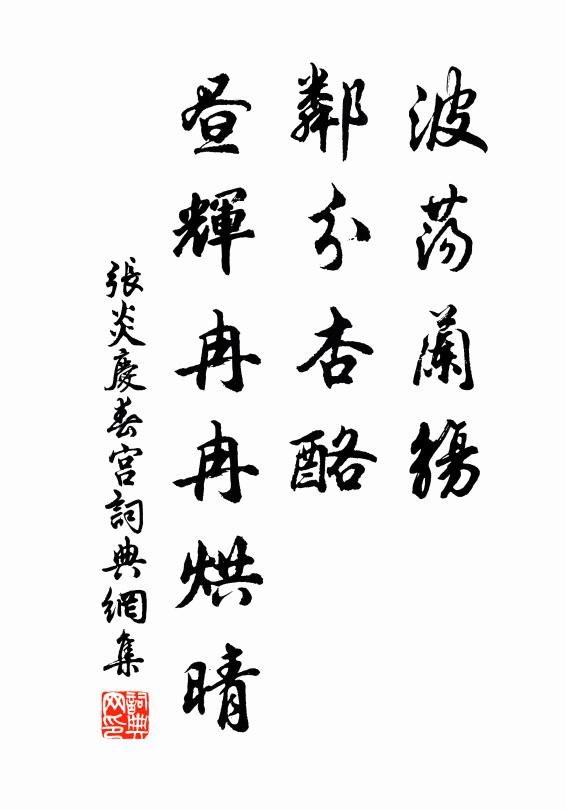 波蕩蘭觴
鄰分杏酪
昼輝冉冉烘晴
張炎慶春宮詞典網集
詞典网印